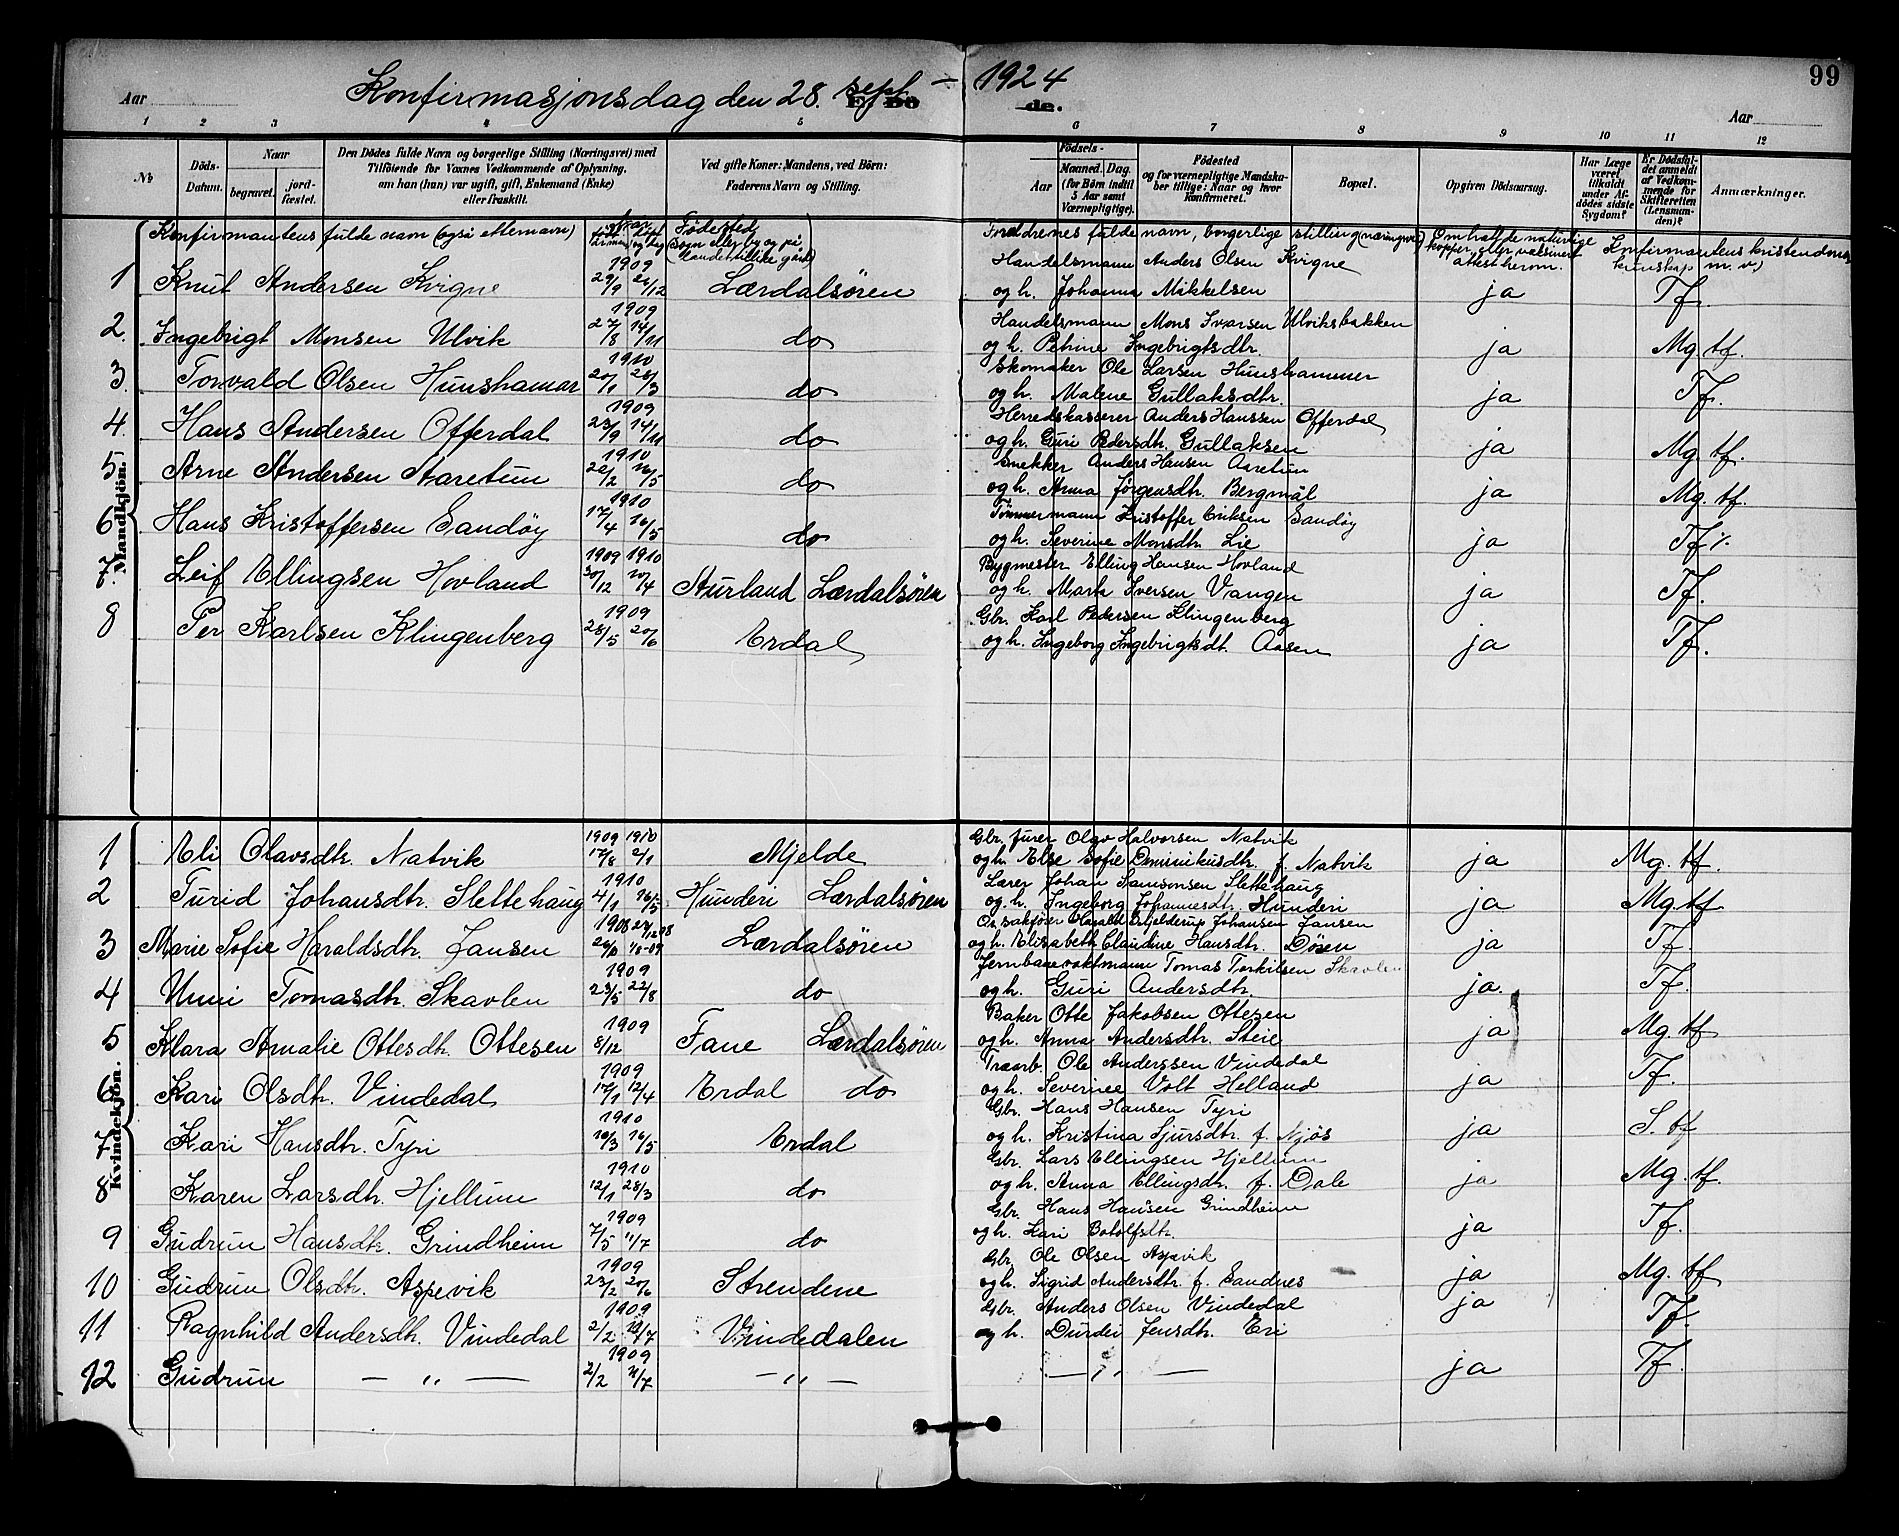 Konfirmasjonsdag den 28. sept. – 1924
99
Aar
Aar
1 2 3 4 5 6 7 8 9 10 11 12
No
Döds-Datum.
Naar
begravet.
jord-fæstet.
Den Dödes fulde Navn og borgerlige Stilling (Næringsvei) med
Tilföiende for Voxnes Vedkommende af Oplysning,
om han (hun) var ugift, gift, Enkemand (Enke)
eller fraskilt.
Ved gifte Koner: Mandens, ved Börn:
Faderens Navn og Stilling.
Födsels-
Aar
Maaned. Dag.
(for Börn indtil
5 Aar samt
Værnepligtige).
Födested
og for værnepligtige Mandska-
ber tillige: Naar og hvor
konfirmeret.
Bopæl.
Opgiven Dödsaarsag.
Har Læge
været
tilkaldt
under Af-
dödes sidste
Sygdom?
Er Dödsfal-
det anmeldt
af Vedkom-
mende for
Skifteretten
(Lensman-
den)?
Anmærkninger.
Konfirmantens fulde navn (også etternavn)
Fødested
(sogn eller by og på
landet tillike gård)
Foreldrenes fulde navn, borgerlige stilling (næringsvei)
Om hatt de naturlige
kopper eller vaksinert
attest herom.
Konfirmantens kristendoms
kunskap m. v.)
Mandkjön.
1 Knut Andersen Kvigne 1909 29/9 26/12 Lærdalsøren Handelsmann Anders Olsen Kvigne
og h. Johanna Mikkelsen ja Tf.
2. Ingebrigt Monsen Ulvik 1909 27/8 14/11 do Handelsmann Mons Ivarsen Ulviksbakken
og h. Petrine Ingebrigtsdtr. ja Mg. tf.
3. Torvald Olsen Hunshamar 1910 20/1 28/3 do Skomaker Ole Larsen Hunshammer
og h. Malene Gullaksdtr. ja Tf.
4. Hans Andersen Offerdal 1909 23/9 14/11 do Herredskasserer Anders Hanssen Offerdal
og h. Guri Pedersdtr. Gullaksen ja Mg. tf.
5. Arne Andersen Aaretun 1910 22/2 16/5 do Snekker Anders Hansen Aaretun
og h. Anna Jørgensdtr. Bergmål ja Mg. tf.
6 Hans Kristoffersen Sandøy 1910 17/4 16/5 do Tømmermann Kristoffer Eriksen Sandøy
og h. Severine Monsdtr. Lie ja Tf.
7. Leif Ellingsen Hovland 1909 1910 30/12 20/4 Aurland Lærdalsøren Bygmester Elling Hansen Hovland
og h. Marta Iversen Vangen ja Tf.
8 Per Karlsen Klingenberg 1909 28/5 20/6 Erdal Gbr. Karl Pedersen Klingenberg
og h. Ingeborg Ingebrigtsdt. Aasen ja Tf.
Kvindekjön.
1 Eli Olavsdtr. Natvik 1909 1910 17/8 2/1 Mjelde Gbr. furer Olav Halvorsen Natvik
og h. Else Sofie Dminikusdtr. f. Natvik ja Mg. tf.
2 Turid Johansdtr. Slettehaug 1910 4/1 16/5 Hunderi Lærdalsøren Lærer Johan Samsonsen Slettehaug
og h. Ingeborg Johannesdtr. Hunderi ja Mg tf
3 Marie Sofie Haraldsdtr. Jansen 1908 Lærdalsøren O.r. sakfører Harald Hjelderup Johansen Jansen
og h. Elisabeth Claudine Hansdtr. Døsen ja Tf.
4 Unni Tomasdtr. Skavlen 1909 23/5 22/8 do Jernbanevaktmann Tomas Torkilsen Skavlen
og h. Guri Andersdtr. ja. Tf.
5 Klara Amalie Ottesdtr. Ottesen 1909 8/12 Fane Lærdalsøren Baker Otte Jakobsen Ottesen
og h. Anna Andersdtr. Steie ja Mg. tf
6 Kari Olsdtr. Vindedal 1909 17/1 12/4 Erdal do Træarb. Ole Anderssen Vindedal
og h. Severinee Volt Helland ja Tf.
7 Kari Hansdtr. Tyri 1910 16/3 16/5 Erdal Gbr. Hans Hansen Tyri
og h. Kristina Sjursdtr. f. Njøs ja S. tf
8 Karen Larsdtr. Hjellum 1910 12/1 28/3 do Gbr. Lars Ellingsen Hjellum
og h. Anna Ellingsdtr. f. Dale ja Mg. tf.
9 Gudrun Hansdtr. Grindheim 1909 7/5 11/7 do Gbr. Hans Hansen Grindheim
og h. Kari Botolfsdtr. ja Tf.
10 Gudrun Olsdtr. Aspevik 1909 23/2 20/6 Strendene Gbr. Ole Olsen Aspevik
og h. Sigrid Andersdtr. f. Sandnes ja Mg. tf
11 Ragnhild Andersdtr. Vindedal 1909 2/2 11/7 Vindedalen Gbr. Anders Olsen Vindedal
og h. Durdei Jensdtr. Eri ja Tf.
12 Gudrun — „ — 1909 2/2 11/7 — „ — — „ — ja Tf.